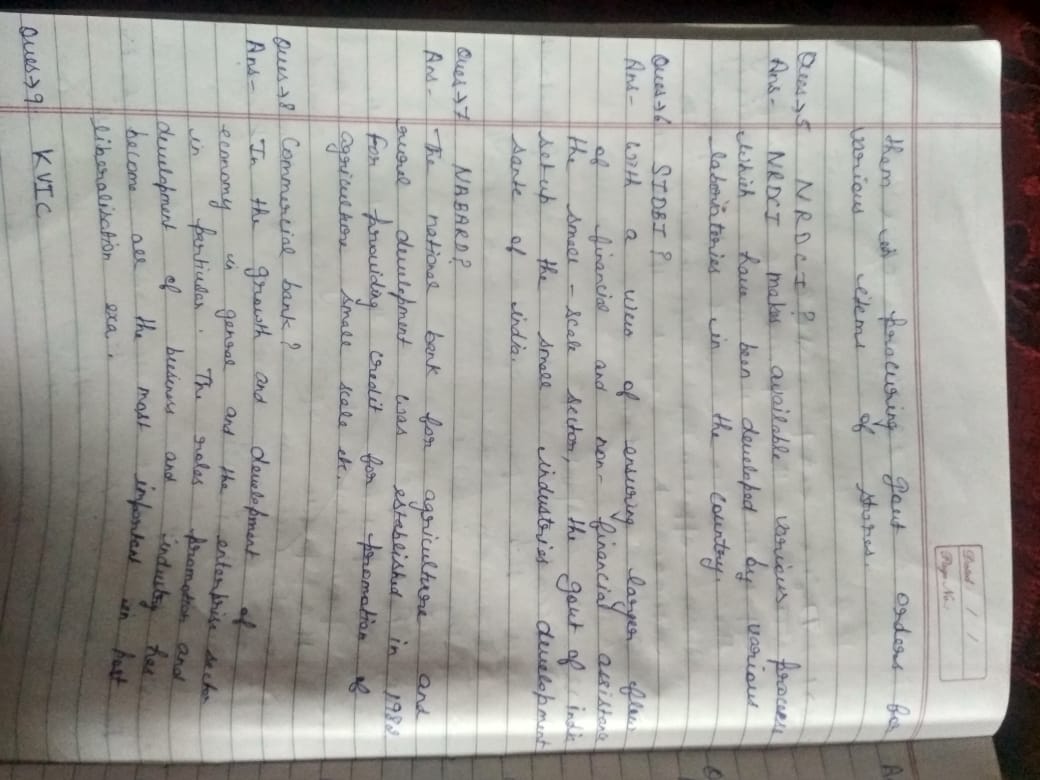 Dated / /
Page No.
them in procuring Gout orders for
various items of stores.
Ques→5 NRDCI?
Ans- NRDCI makes available various process
which have been developed by various
laboriateries in the country.
Ques→6 SIDBI?
Ans- With a view of ensuring larger flow
of financial and non-financial assistance
the small-scale sector, the gout of india
setup the small industries development
of india.
Ques→7 NABARD?
Ans- The national bank for agriculture and
rural development was established in 1982
For providing credit for promation of
agriculture small scale etc.
Ques→8 Commercial bank?
Ans- In the growth and development of
economy in general and the enterprise sector
in particular. The roles promotion and
development of business and industry has
become all the most important in post
liberalisation exa.
Ques→9 KVIC